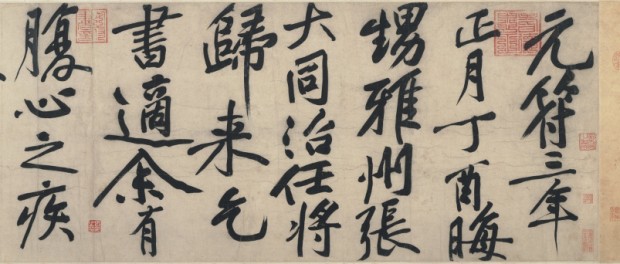 元符三年
正月丁酉晦
甥雅州張
大同治任將
歸来乞
書適余有
腹心之疾